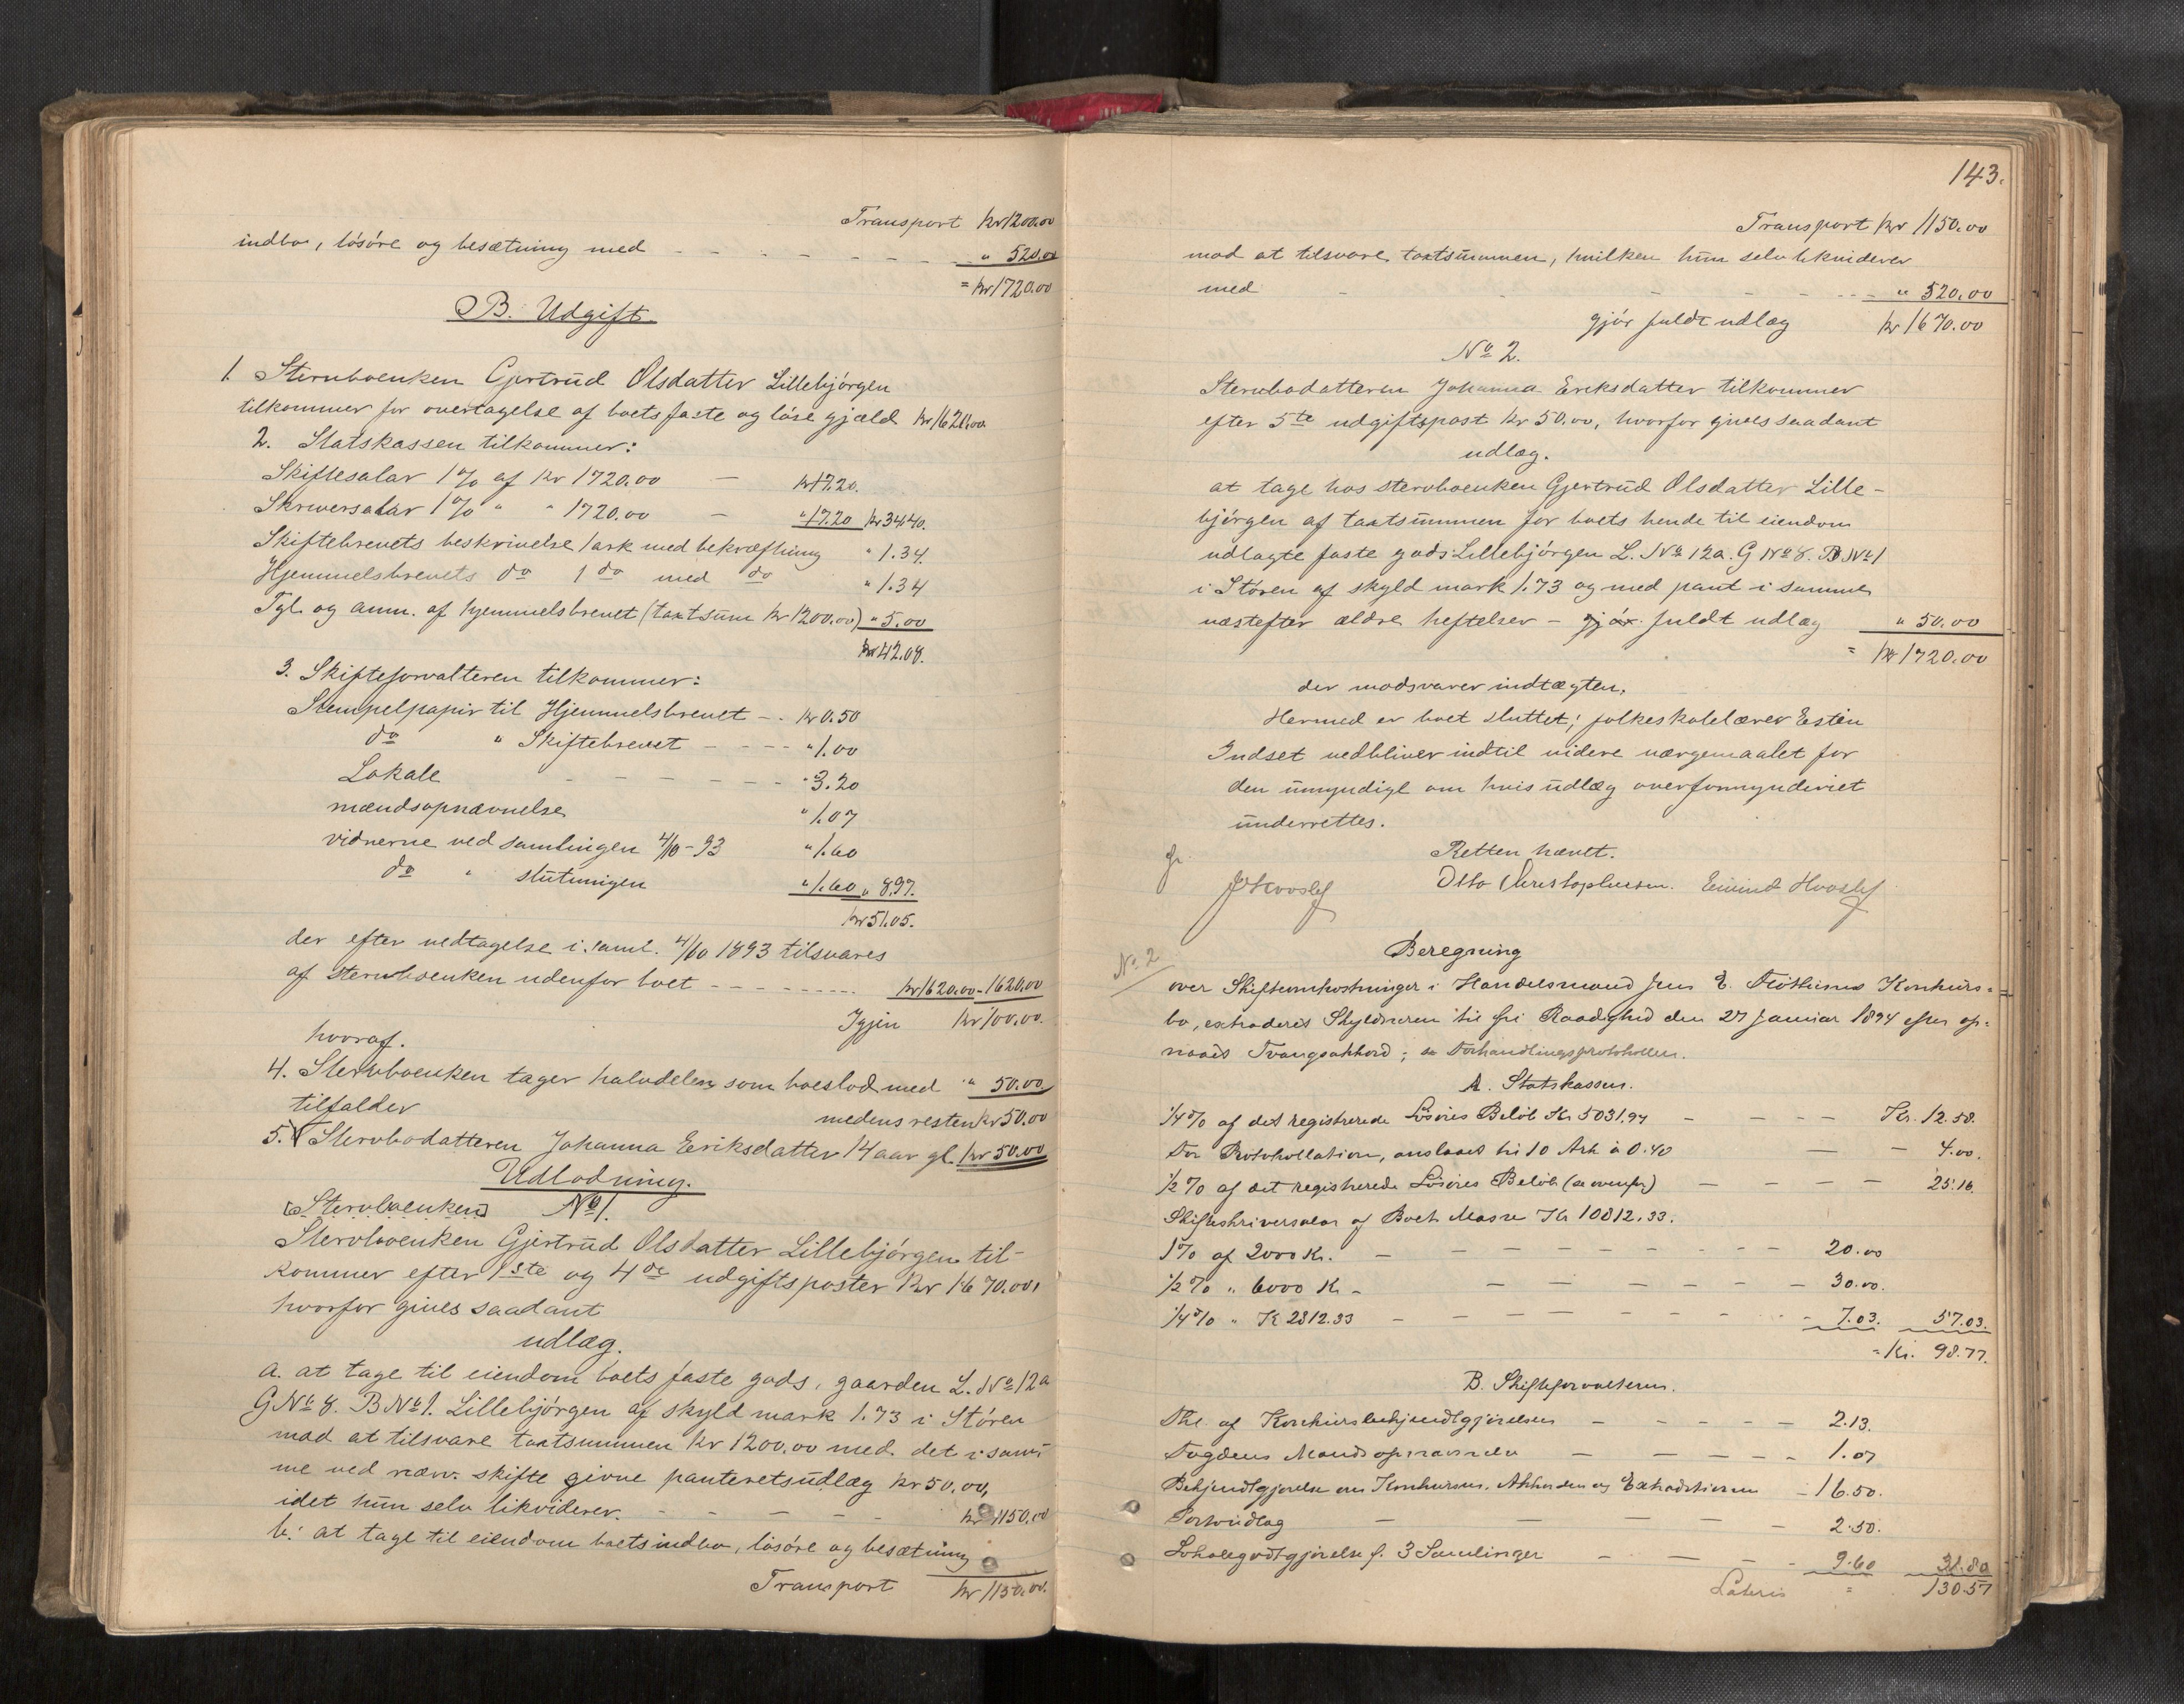 Transport kr 1200.00
indbo, løsøre og besætning med - - - - - - - " 520.00
= kr 1720.00
B. Udgift
1. Stervboenken Gjertrud Olsdatter Lillebjørgen
tilkommer for overtagelse af boets faste og løse gjæld kr 1620.00
2. Statskassen tilkommer:
Skiftesalar 1 % af kr 1720.00 - kr 17.20.
Skriversalar 1 % " " 1720.00 - " 17.20 kr 34.40.
Skiftebrevets beskrivelse 1 ark med bekræftning " 1.34.
Hjemmelsbrevets do 1 do med do " 1.34
Tgl. og ann. af hjemmelsbrevet (taxtsum kr 1200.00) " 5.00
kr 42.08.
3. Skifteforvalteren tilkommer:
Stempelpapir til Hjemmelsbrevet - . kr 0.50
do " Skiftebrevet - - - - " 1.00
Lokale - - - - - - - " 3.20
mændsopnævnelse " 1.07
vidnerne ved samlingen 4/10-93 " 1.60
do " slutningen " 1.60 " 8.97.
kr 51.05.
der efter vedtagelse i saml. 4/10 1893 tilsvares
af stervboenken udenfor boet - - - - - - - - kr 1620.00 - 1620.00
Igjen kr 100.00.
hvoraf.
4. Stervboenken tager halvdelen som boeslod med " 50.00
tilfalder medens resten kr 50.00
5. Stervbodatteren Johanna Eriksdatter 14 aar gl. kr 50.00
Udlodning.
[Stervboenken] No 1.
Stervboenken Gjertrud Olsdatter Lillebjørgen til-
kommer efter 1ste og 4de udgiftsposter kr 1670.00,
hvorfor gives saadant
udlæg.
a. at tage til eiendom boets faste gods, gaarden L. No 12a
G No 8. B No 1. Lillebjørgen af skyld mark 1.73 i Støren
mod at tilsvare taxtsummen kr 1200.00 med det i sam-
me ved nærv. skifte givne panteretsudlæg kr 50.00,
idet hun selv likviderer. - - - - - kr 1150.00
b. at tage til eiendom boets indbo, løsøre og besætning
Transport kr 1150.00.
143.
Transport kr 1150.00
mod at tilsvare taxtsummen, hvilken hun selv likviderer
med - - - - - - - " 520.00
gjør fuldt udlæg kr 1670.00
No 2.
Stervbodatteren Johanna Eriksdatter tilkommer
efter 5te udgiftspost kr 50.00, hvorfor gives saadant
udlæg.
at tage hos stervboenken Gjertrud Olsdatter Lille-
bjørgen af taxtsummen for boets hende til eiendom
udlagte faste gods Lillebjørgen L. No 12a. G No 8. B No 1
i Støren af skyld mark 1.73 og med pant i samme
næstefter ældre heftelser - gjør fuldt udlæg " 50.00
= kr 1720.00
der modsvarer indtægten.
Hermed er boet sluttet; folkeskolelærer Esten
Indset vedbliver indtil videre værgemaalet for
den umyndige om hvis udlæg overformynderiet
underrettes.
Retten hævet.
Otto Christophersen. Eivind Hovslef
No 2
Beregning
over Skifteomkostninger i Handelsmand Jens E. Konkurs-
bo, extraderet Skyldneren til fri Raadighed den 27 Januar 1894 efter op-
naaet Tvangsakkord; se Forhandlingsprotokollen.
A. Statskassen.
1/4 % af det registrerede Løsøres Beløb Kr 5031.94 - - - - Kr. 12.58.
For Protokollation, anslaaet til 10 Ark à 0.40 - - 4.00.
1/2 % af det registrerede Løsøres Beløb (se ovenfor) - - - - 25.16.
Skifteskriversalar af Boets Masse Kr 10812.33.
1 % af 2000 Kr. - - - - - - - - - 20.00
1/2 % " 6000 Kr - - - - - - - 30.00.
1/4 % " Kr 2812.33 - - - - - - - 7.03. 57.03.
= Kr. 98.77.
B. Skifteforvalteren.
Thl. af Konkursbekjendtgjørelsen - - - - - 2.13.
Fogdens Mandsopnævnelse - - - - - 1.07
Bekjendtgjørelse om Konkursen, Akkorden og Extraditionen - 16.50.
Portoudlæg - - - - 2.50.
Lokalegodtgjørelse f. 3 Samlinger - - - - 9.60 31.80
Lateris = 130.57